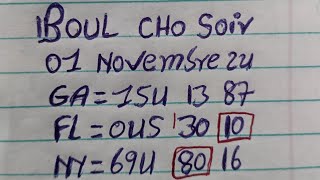 BOUL CHO Soir
01 Novembre 24
GA = 154 13 87
FL = 045 30 10
NY = 694 80 16